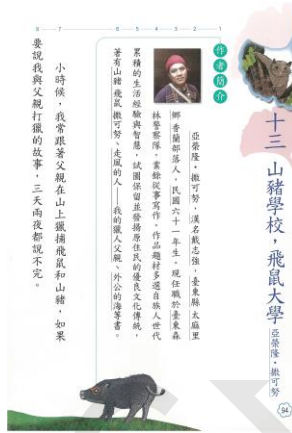 十三　山豬學校，飛鼠大學
亞榮隆・撒可努
作者簡介
亞榮隆・撒可努，漢名戴志強，臺東縣太麻里
鄉香蘭部落人，民國六十一年生。現任職於臺東森
林警察隊，業餘從事寫作。作品題材多選自族人世代
累積的生活經驗與智慧，試圖保留並發揚原住民的優良文化傳統，
著有山豬飛鼠撒可努、走風的人——我的獵人父親、外公的海等書。
小時候，我常跟著父親在山上獵捕飛鼠和山豬，如果
要說我與父親打獵的故事，三天兩夜都說不完。
1
2
3
4
5
6
7
8
94